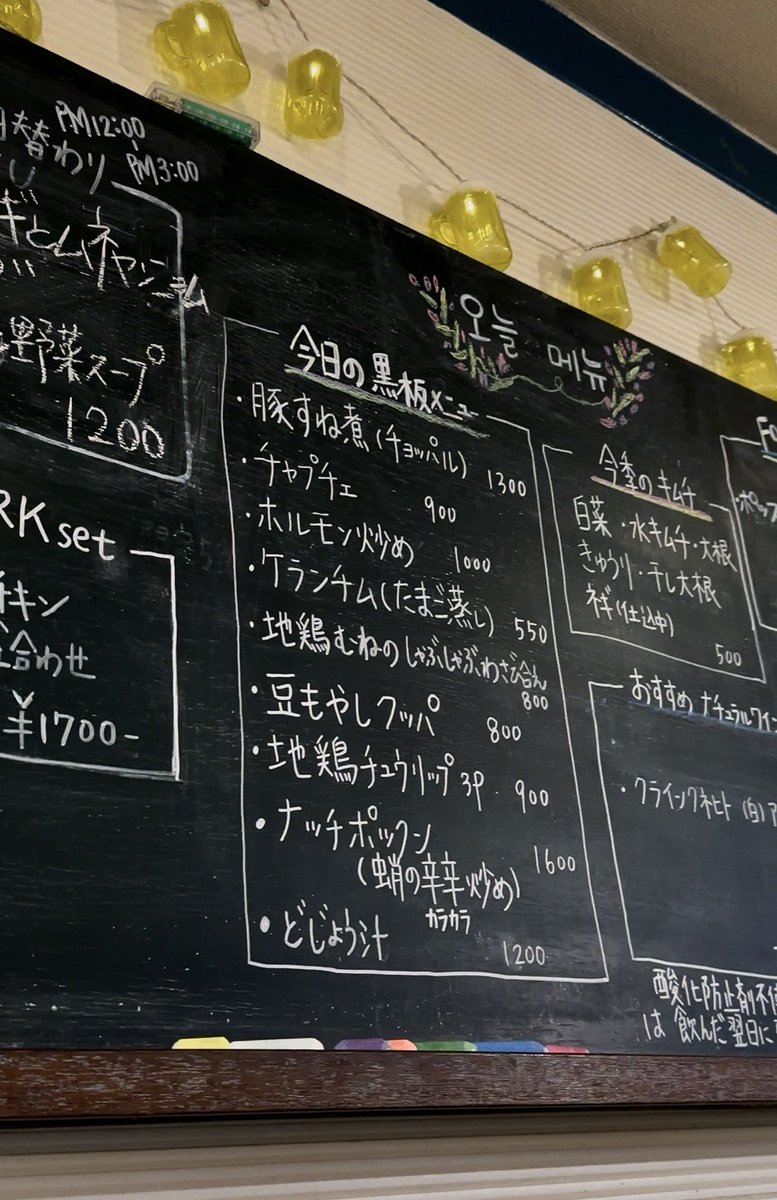 PM12:00
PM3:00
替わり
野菜スープ
1200
RK set
キン
合わせ
¥1700-
오늘 메뉴
今日の黒板メニュー
・豚すね煮(チョッパル) 1300
・チャプチェ 900
・ホルモン炒め 1000
・ケランチム(たまご蒸し) 550
・地鶏むねのしゃぶしゃぶわさび合え
800
・豆もやしクッパ 800
・地鶏チュウリップ 3P 900
・ナッチポックン
(蛸の辛辛炒め) 1600
カラカラ
・どじょう汁 1200
今季のキムチ
白菜・水キムチ・大根
きゅうり・干し大根
ネギ(仕込中)
500
おすすめ ナチュラルワイン
・クライングネヒト (白)
酸化防止剤不使
は 飲んだ翌日に